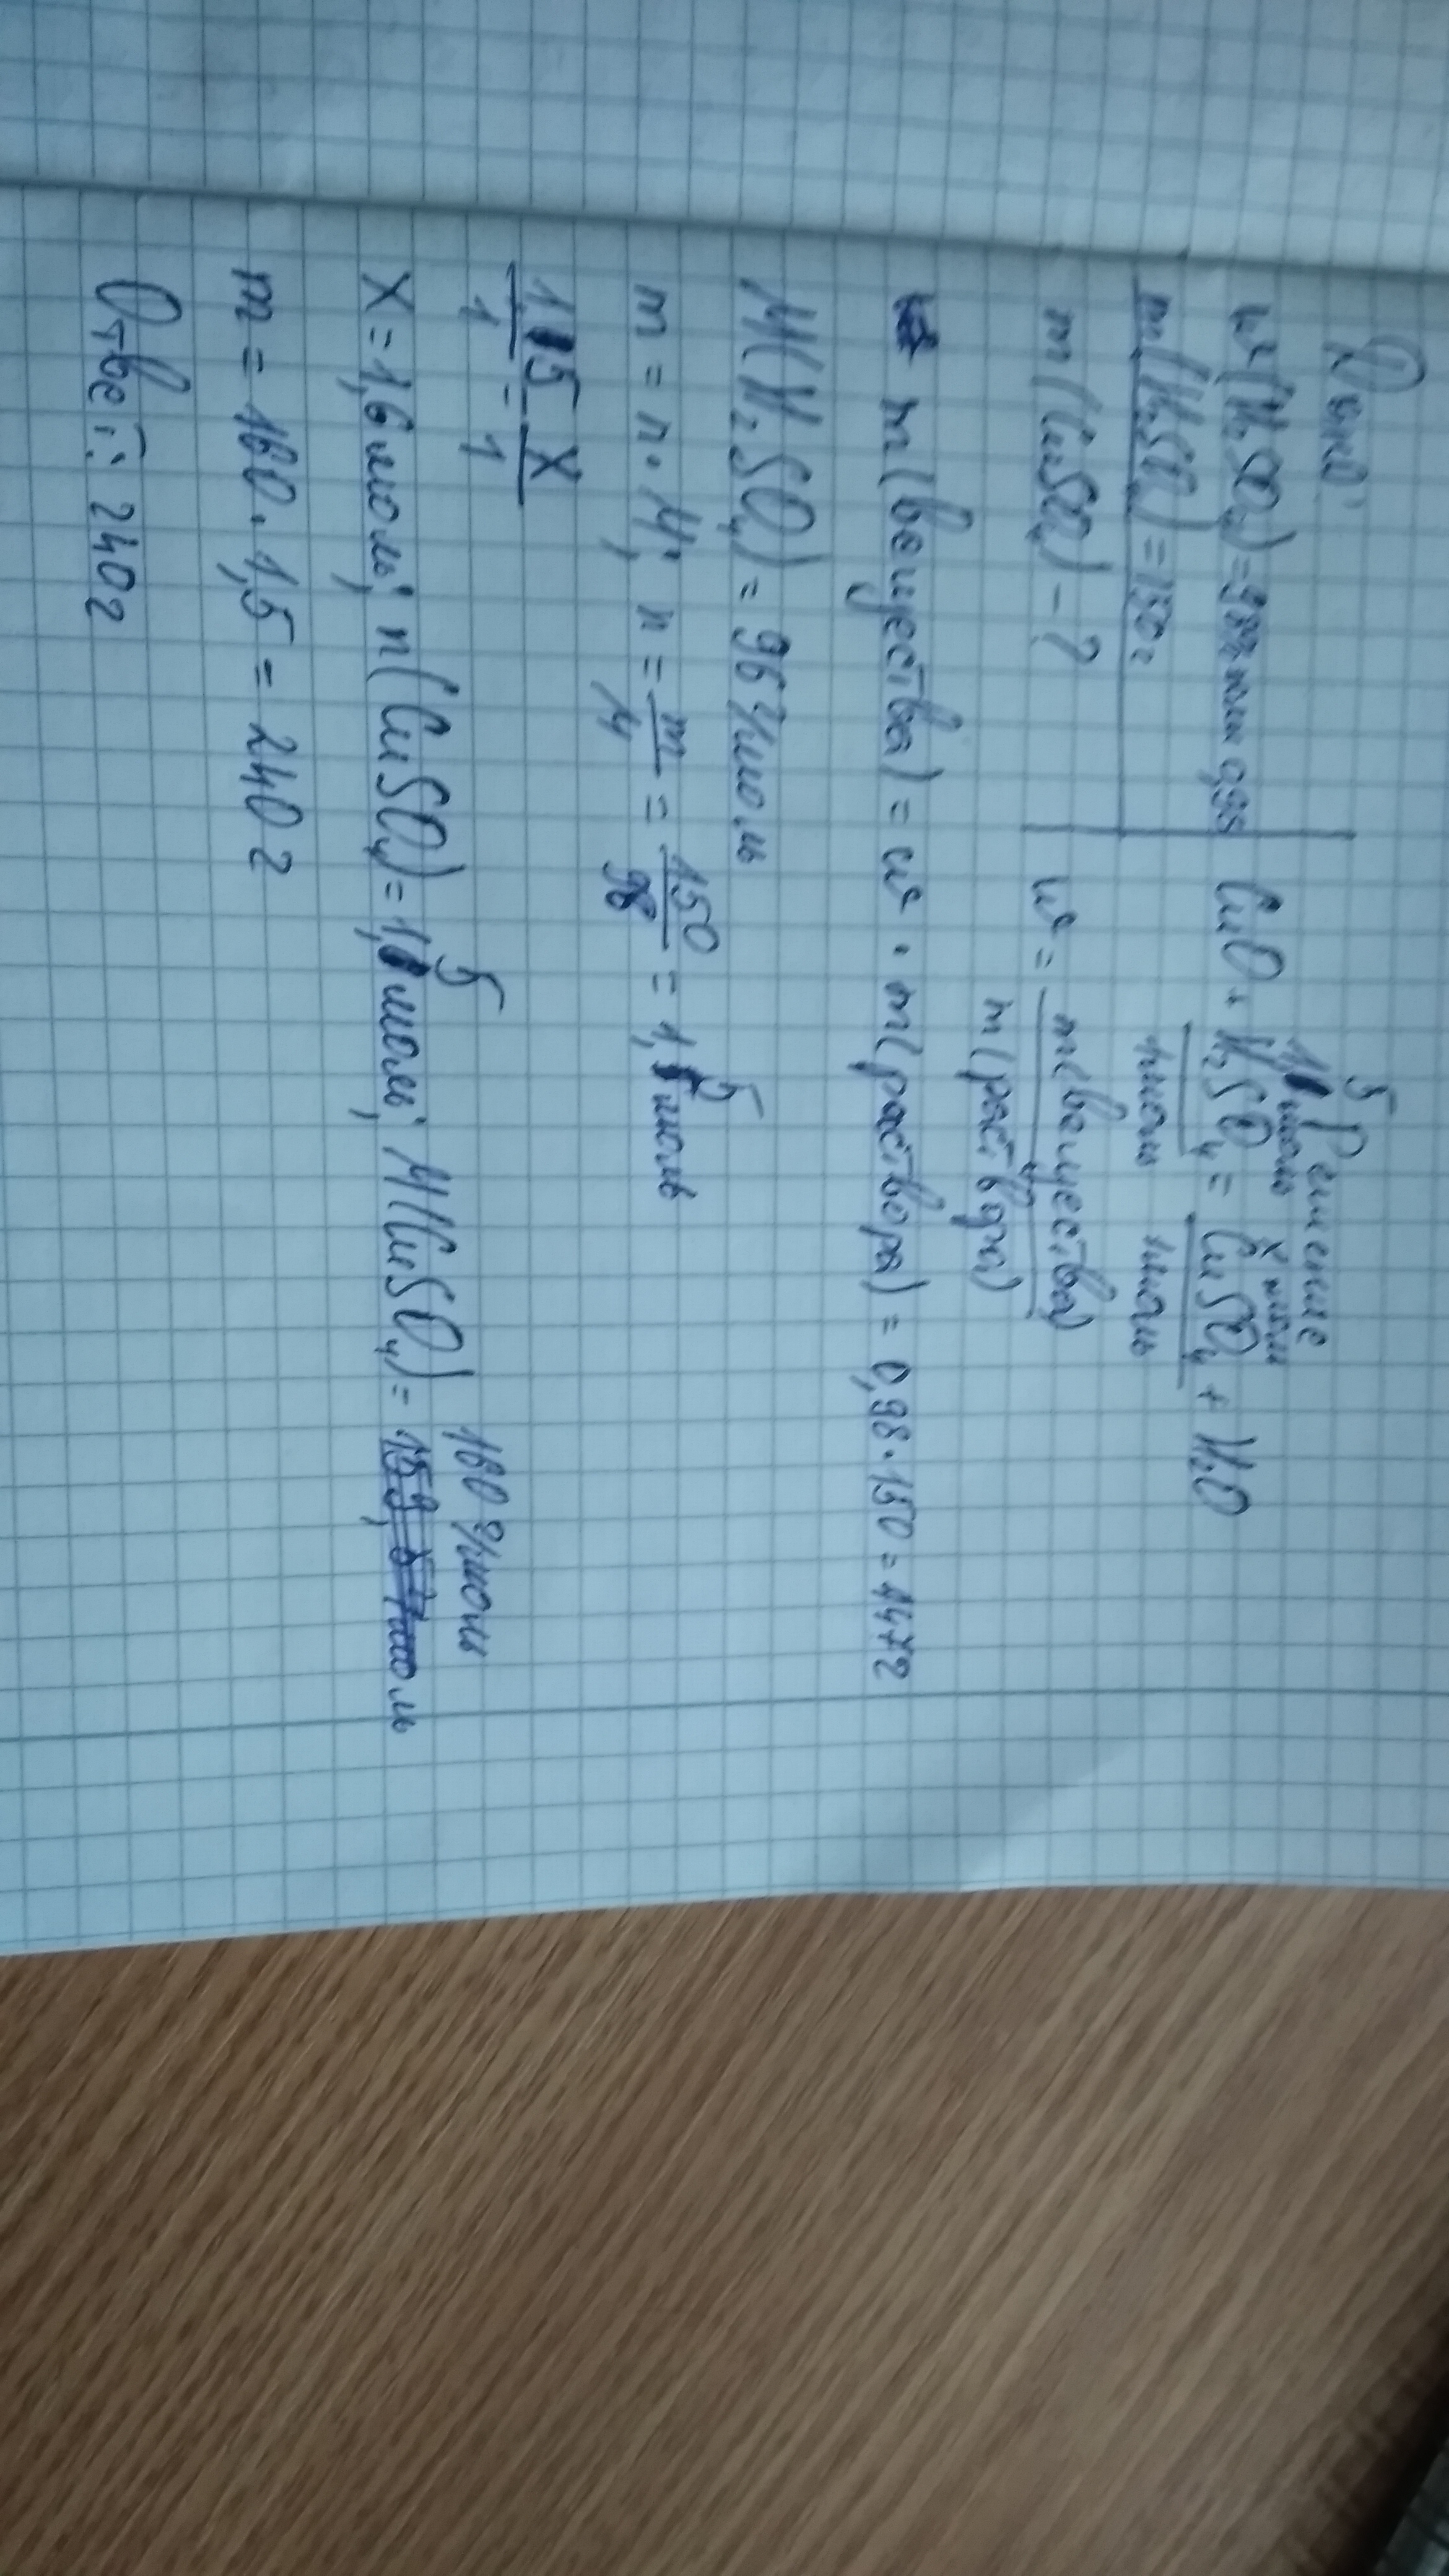 Дано: Решение
w(H₂SO₄) = 98% или 0,98
m(H₂SO₄) = 150г
m(CuSO₄) - ?
1,5 моль x моль
CuO + H₂SO₄ = CuSO₄ + H₂O
1 моль 1 моль
w = m(вещества) / m(раствора)
m(вещества) = w · m(раствора) = 0,98 · 150 = 147г
M(H₂SO₄) = 96 г/моль
m = n · M; n = m/M = 150/98 = 1,5 моль
1,5/1 = x/1
X = 1,6 моль; n(CuSO₄) = 1,5 моль; M(CuSO₄) = 160 г/моль
m = 160 · 1,5 = 240 г
Ответ: 240г